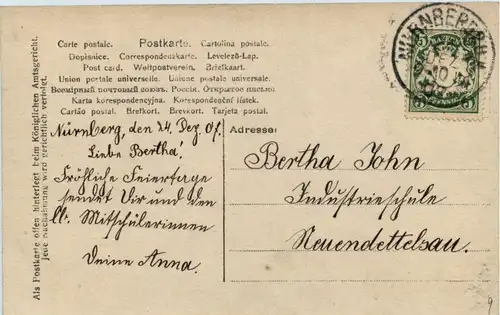 Carte postale. Postkarte. Cartolina postale.
Dopisnice. Correspondenzkarte. Levelező-Lap.
Post card. Weltpostverein. Briefkaart.
Union postale universelle. Unione postale universale.
Всемірный почтовый союзъ. Россія. Открытое письмо.
Karta korespondencyjna. Korespondenční lístek.
Cartão postal. Brefkort. Brevkort. Tarjeta postal.
Als Postkarte offen hinterlegt beim Königlichen Amtsgericht.
Jede Nachahmung wird gerichtlich verfolgt.
Nürnberg, den 24. Dez. 07.
Liebe Bertha!
Fröhliche Feiertage
sendet Dir und den
lb. Mitschülerinnen
Deine Anna.
Adresse:
Bertha John
Industrieschule
Neuendettelsau.
NUERNBERG
DEZ
5 5
PFENNIG
9